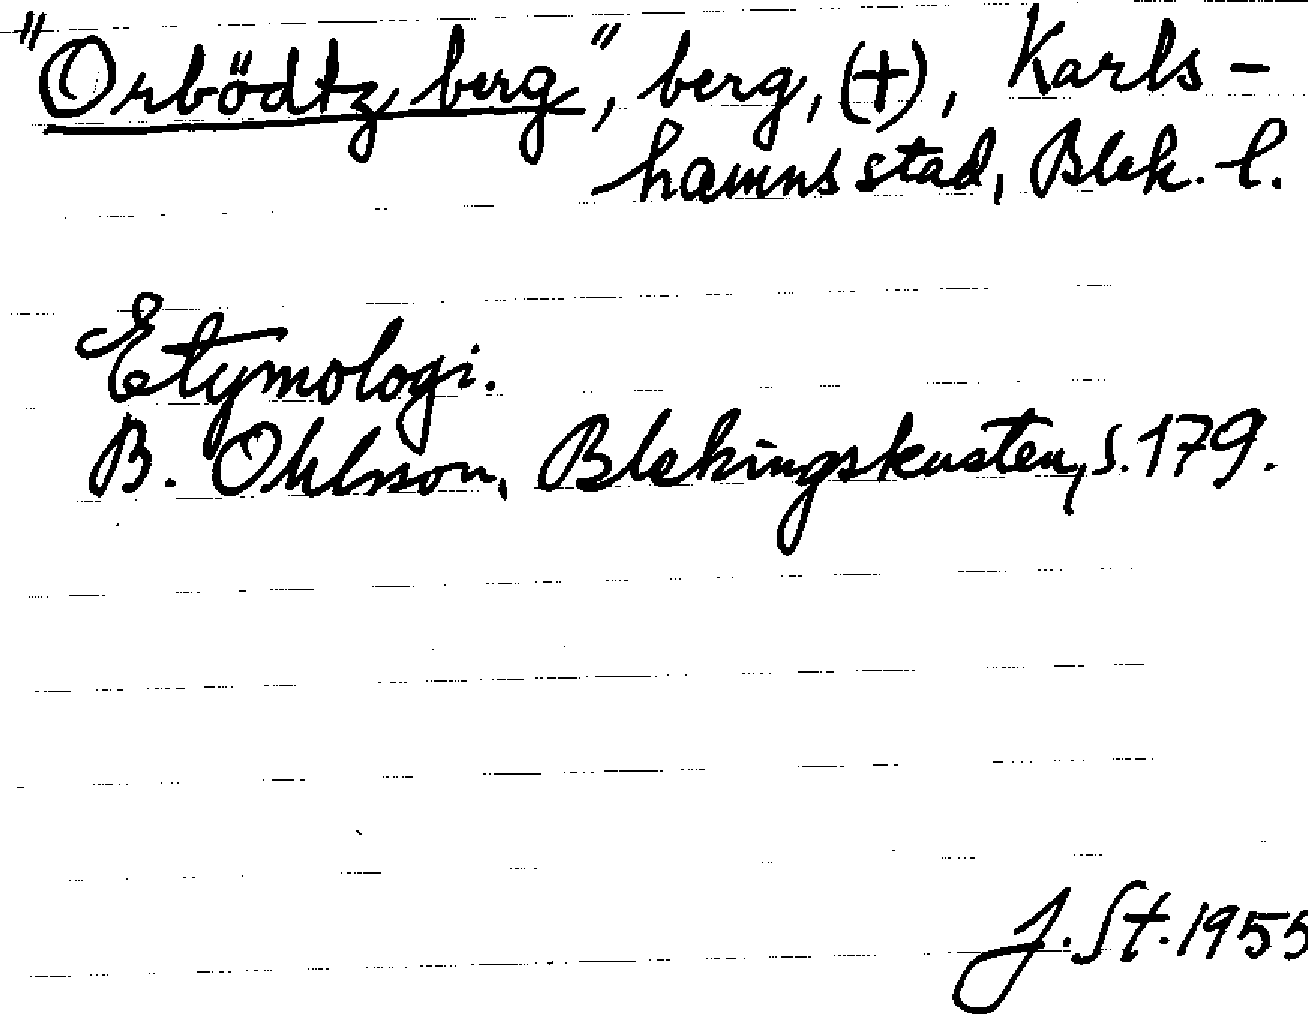 "Orbödtz berg", berg, (+), Karls-
hamns stad, Blek. l.
Etymologi.
B. Ohlsson, Blekingskusten, s. 179.
J. St. 1955